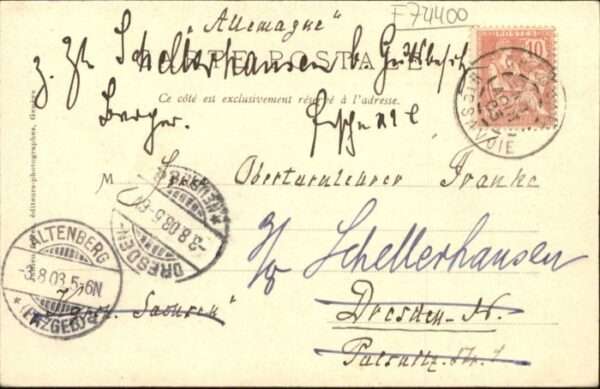 F74400
"Allemagne"
CARTE POSTALE
z. Zt. Schellerhausen b. Gutsbesitz
Ce côté est exclusivement réservé à l'adresse.
Berger.
éditeurs-photographes, Genève
POSTES
10
SAVOIE
M
Herrn Oberturnlehrer Franke
DRESDEN-NEUST
3.8.03.5-6
ALTENBERG
3.8.03.5-6N
(ERZGEB)
z/Zt Schellerhausen
Sachsen"
Dresden-N.
Pulsnitz.Str.1